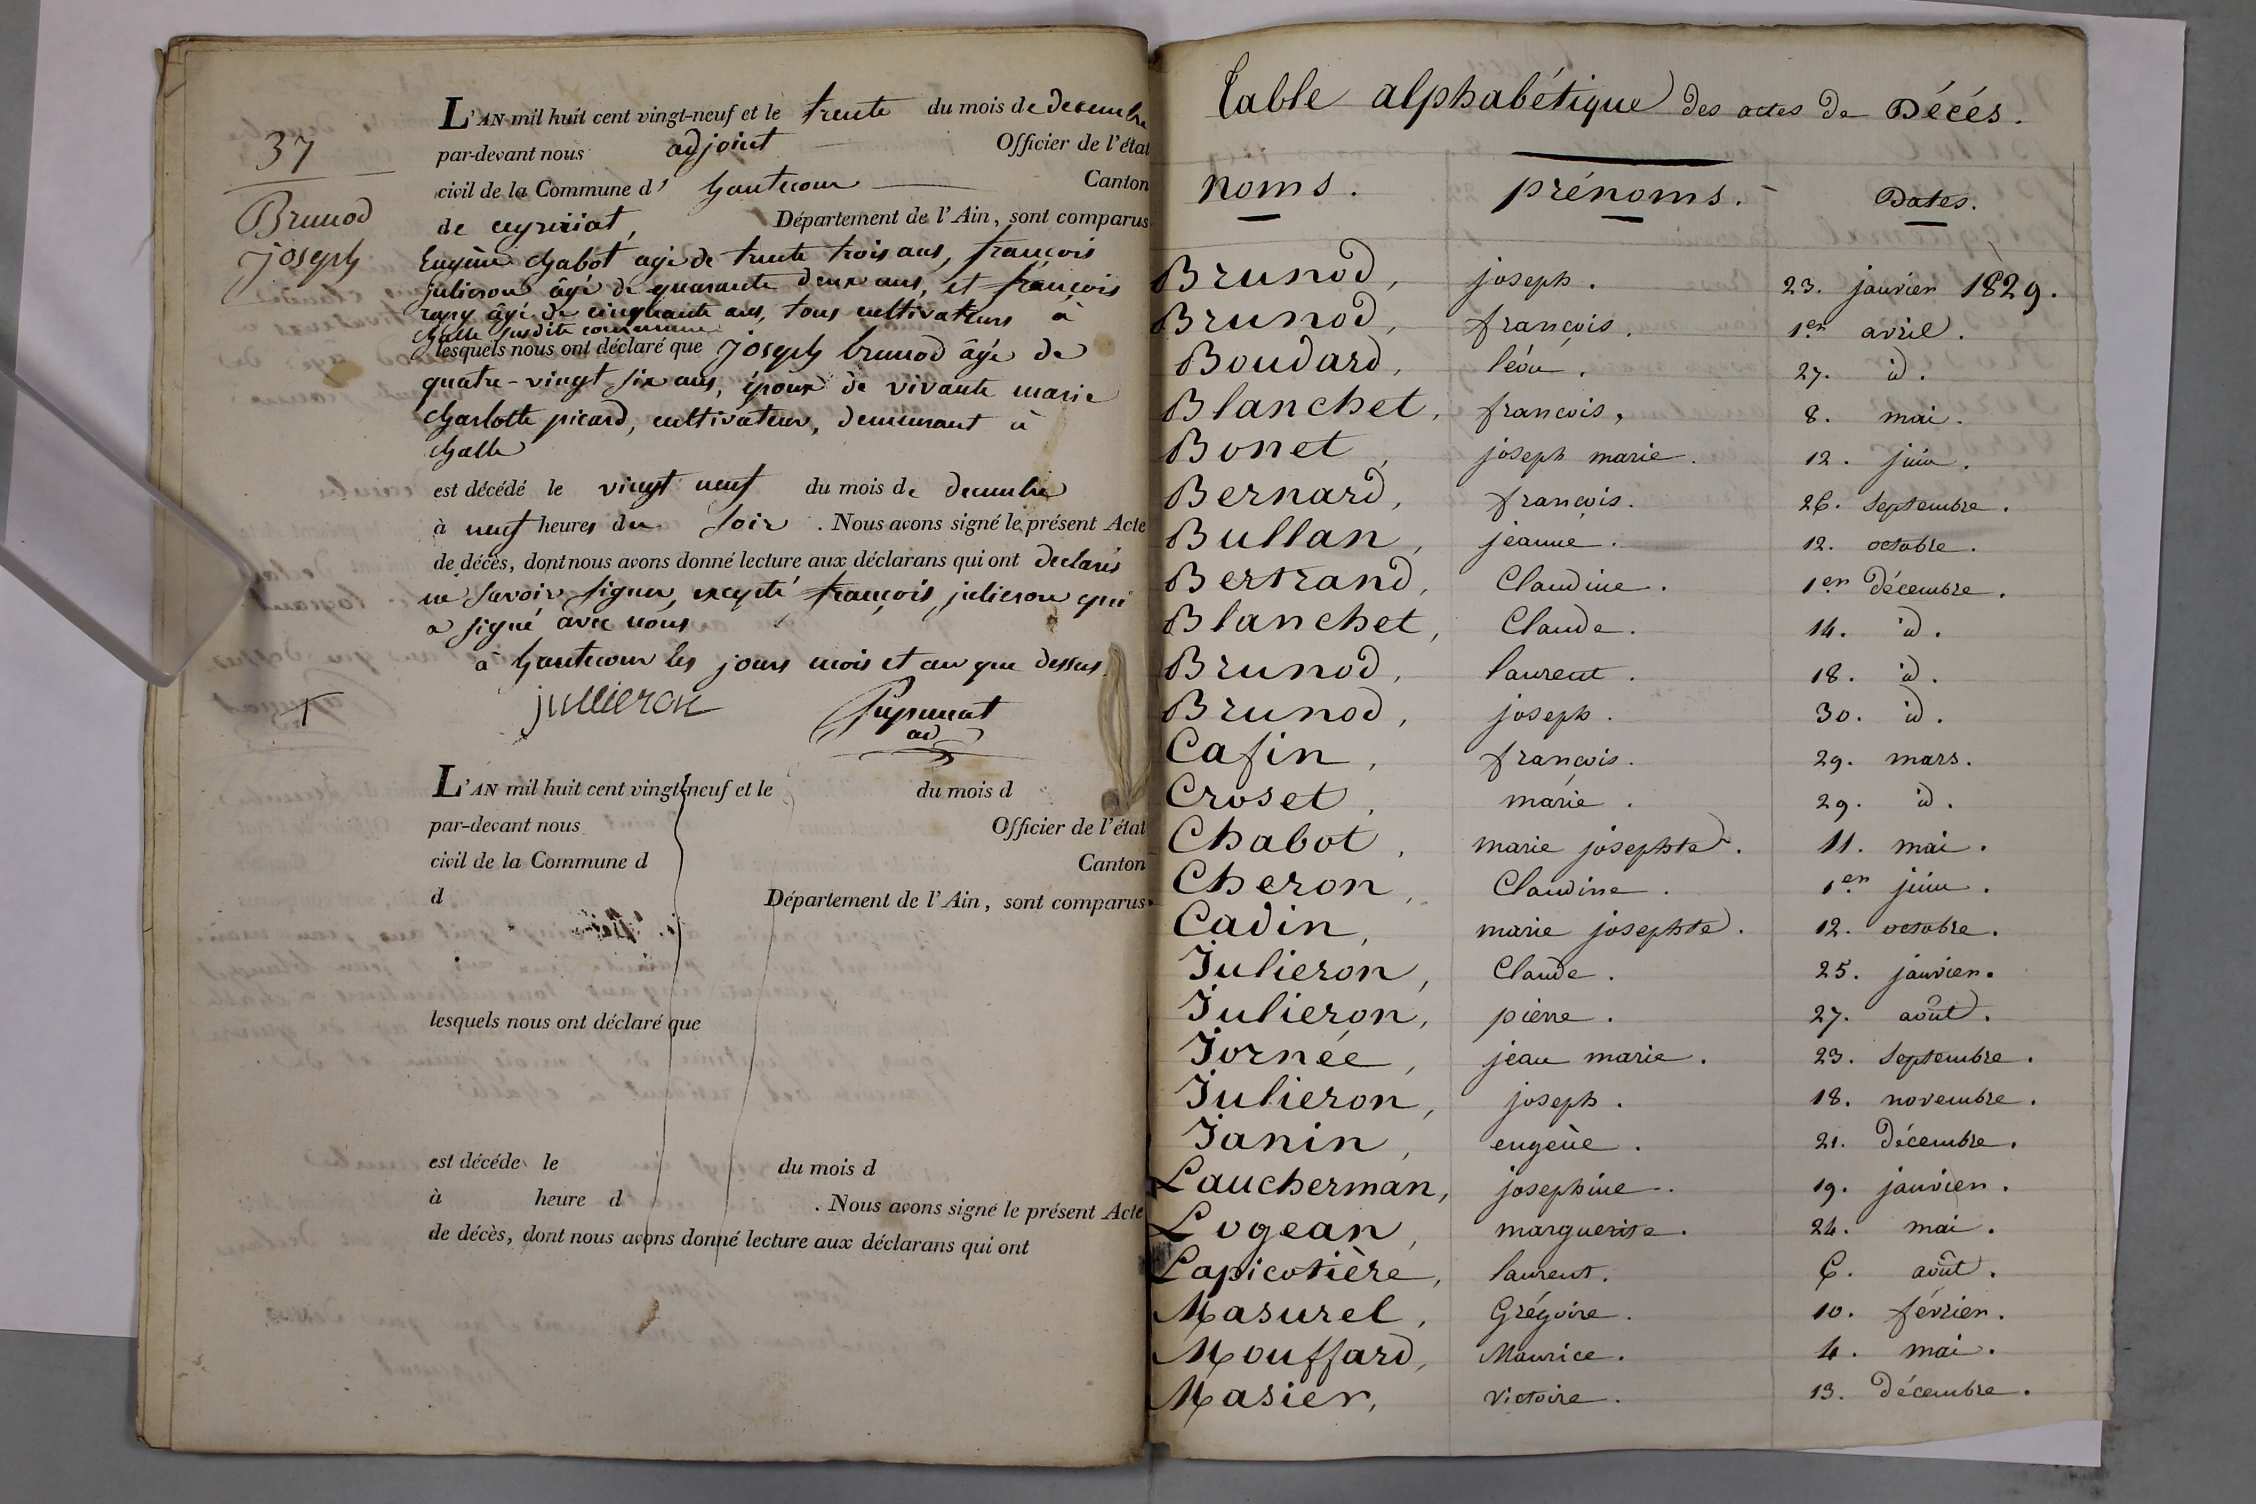 37
Brunod
joseph
L'AN mil huit cent vingt-neuf et le trente du mois de decembre
par-devant nous adjoint Officier de l'état
civil de la Commune d' hautecour Canton
de ceyzériat, Département de l'Ain, sont comparus
Eugène chabot agé de trente trois ans, françois
julieron âgé de quarante deux ans, et françois
âgé de cinquante ans, tous cultivateurs à
challe susdite commune
lesquels nous ont déclaré que joseph brunod âgé de
quatre-vingt six ans, époux de vivante marie
charlotte picard, cultivateur, demeurant à
challe
est décédé le vingt neuf du mois de decembre
à neuf heures du soir . Nous avons signé le présent Acte
de décès, dont nous avons donné lecture aux déclarans qui ont declarés
ne savoir signer, excepté françois julieron qui
a signé avec nous
à hautecour les jours mois et an que dessus.
jullieron
ad
L'AN mil huit cent vingt-neuf et le du mois d
par-devant nous Officier de l'état
civil de la Commune d Canton
d Département de l'Ain, sont comparus
lesquels nous ont déclaré que
est décédé le du mois d
à heure d . Nous avons signé le présent Acte
de décès, dont nous avons donné lecture aux déclarans qui ont
Table alphabétique des actes de Décés.
noms. prénoms. Dates.
Brunod, joseph. 23. janvier 1829.
Brunod, françois. 1er avril.
Boudard, léon. 27. id.
Blanchet, francois, 8. mai.
Bonet, joseph marie. 12. juin.
Bernard, françois. 26. septembre.
Bullan, jeanne. 12. octobre.
Bertrand, Claudine. 1er décembre.
Blanchet, Claude. 14. id.
Brunod, laurent. 18. id.
Brunod, joseph. 30. id.
Cafin, françois. 29. mars.
Croset, marie. 29. id.
Chabot, marie josephte. 11. mai.
Cheron, Claudine. 1er juin.
Cadin, marie josephte. 12. octobre.
Julieron, Claude. 25. janvier.
Julieron, pierre. 27. août.
Jornée, jean marie. 23. septembre.
Julieron, joseph. 18. novembre.
Janin, eugène. 21. décembre.
Laucherman, josephine. 19. janvier.
Logean, marguerite. 24. mai.
Lapicotière, laurent. 6. août.
Masurel, Grégoire. 10. février.
Mouffard, Maurice. 4. mai.
Masier, victoire. 13. décembre.